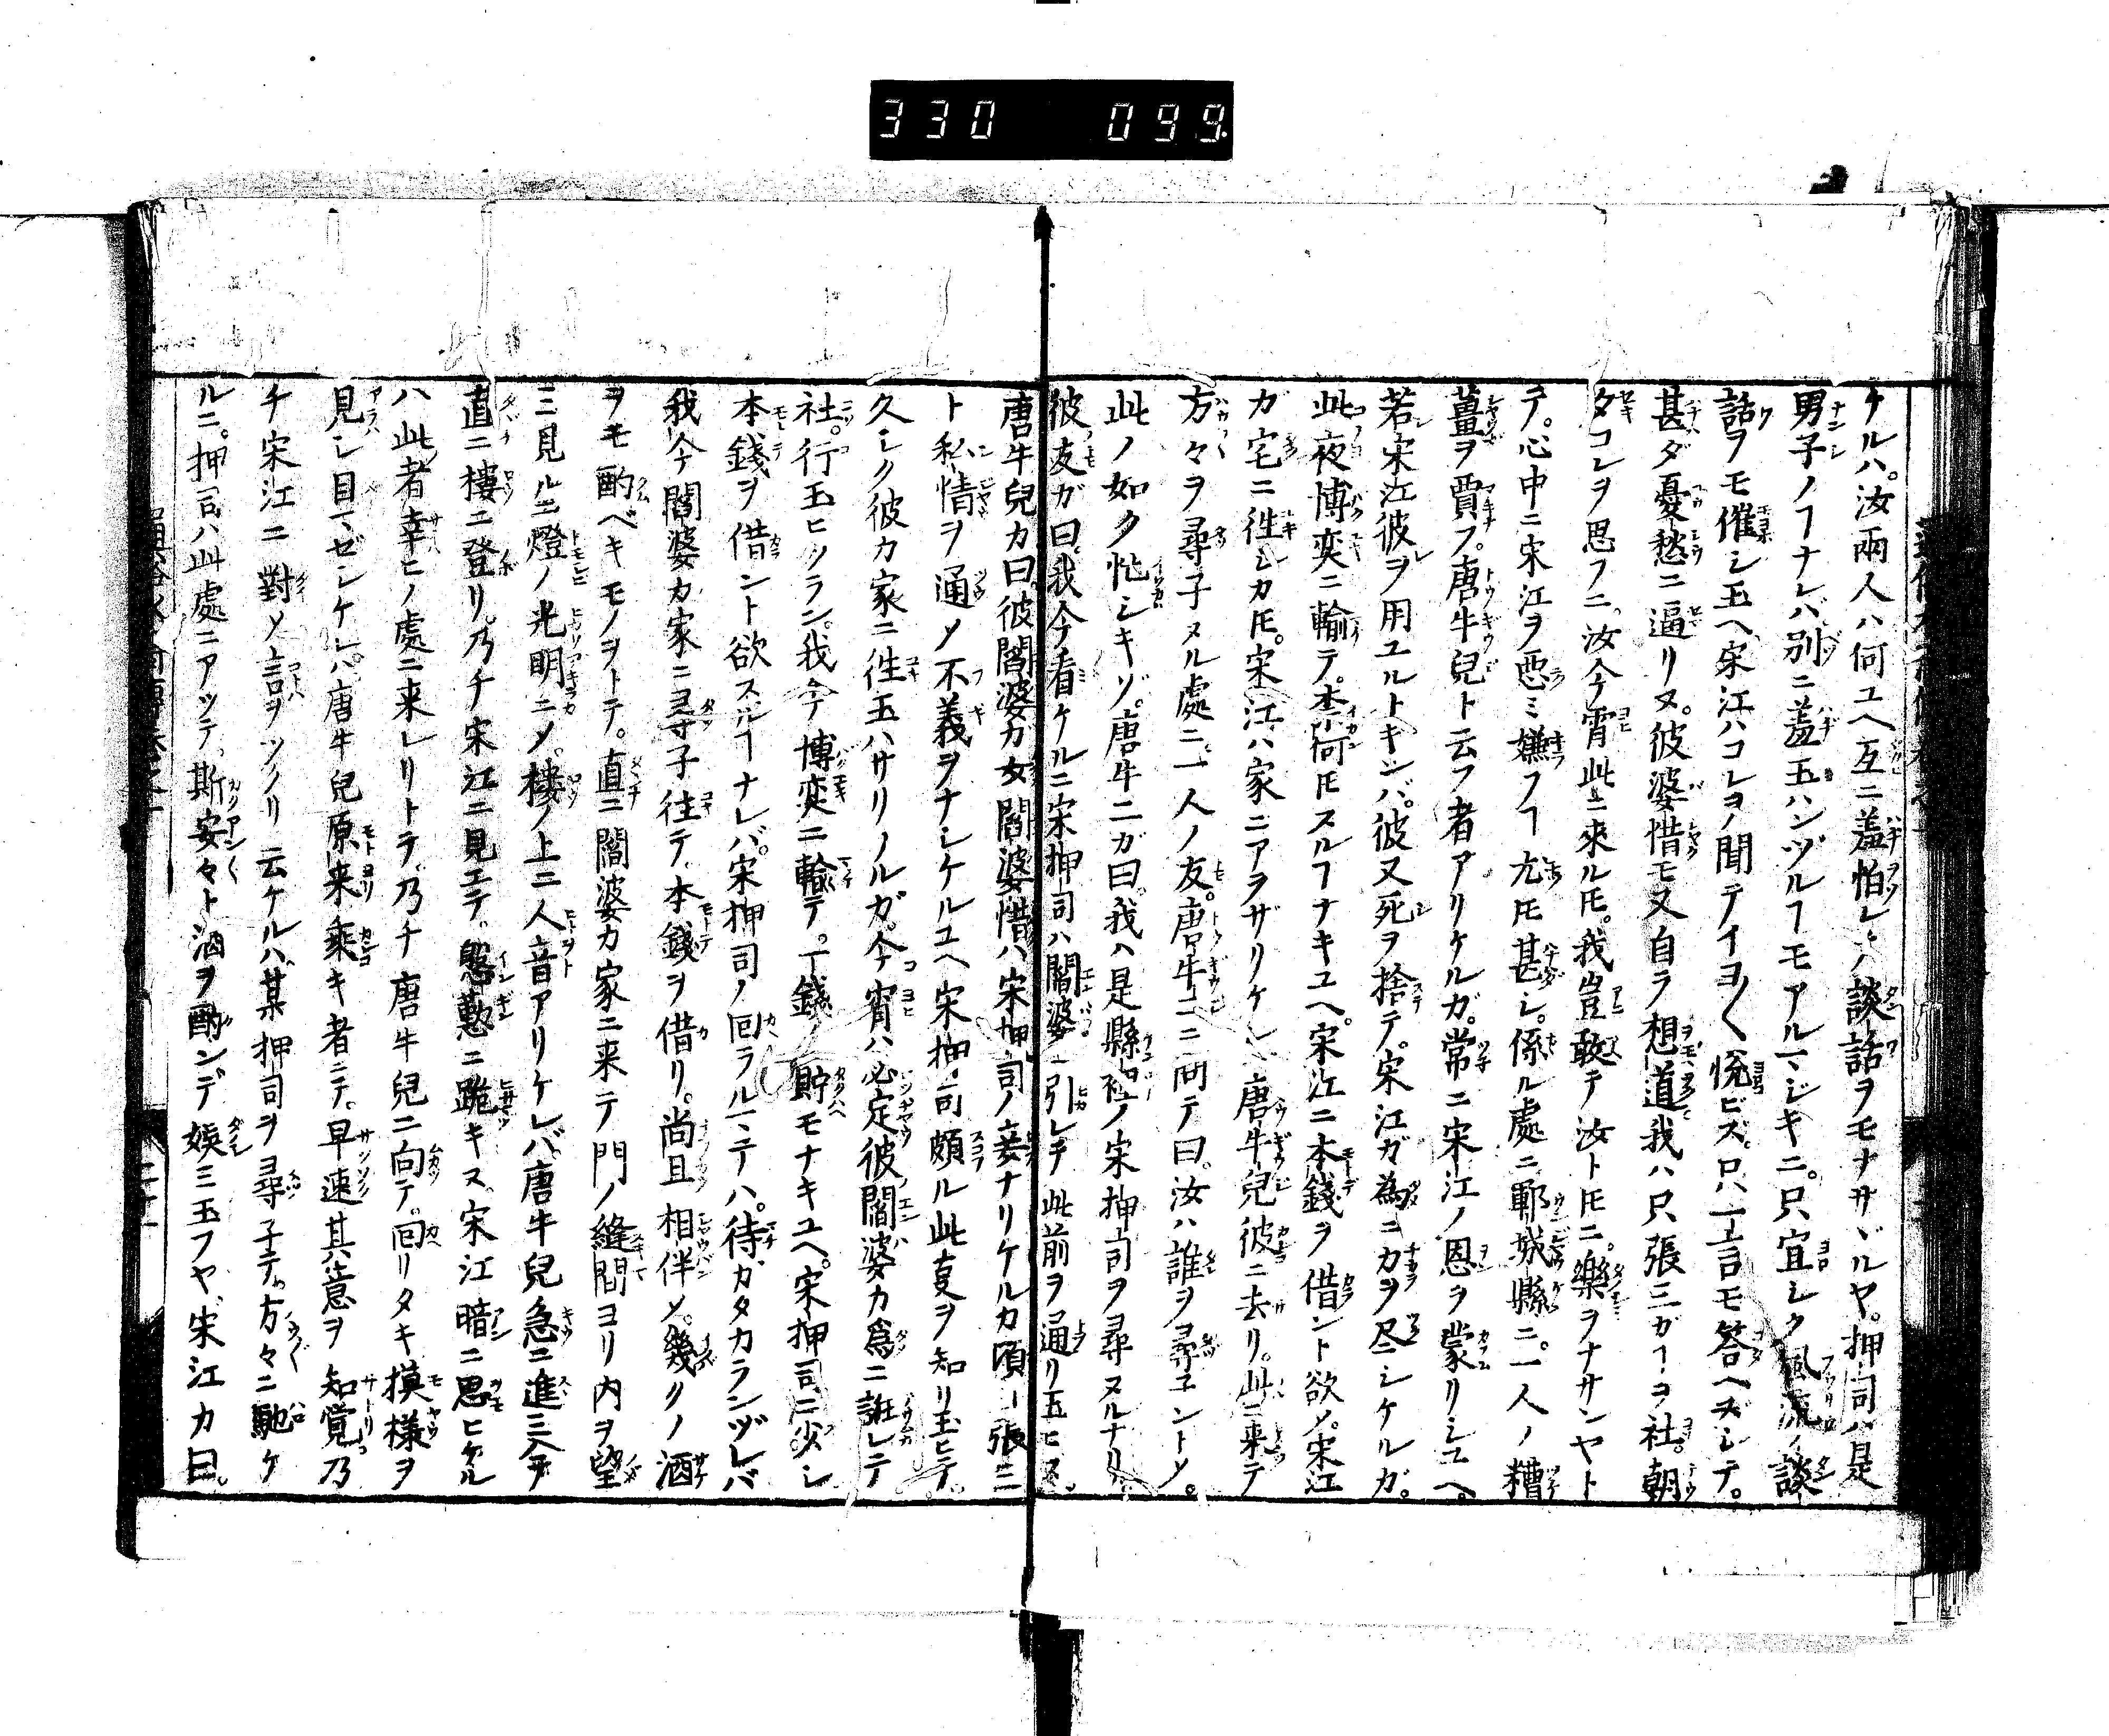 330 099
ナルハ。汝兩人ハ何ユヘ互ニ羞怕レ、ノ談話ヲモナサヾルヤ。押司ハ是
男子ノヿナレバ、別ニ羞玉ハンヅルヿモアルマジキニ。只宜シク風流ノ談
話ヲモ催シ玉ヘ。宋江ハコレヲ聞テイヨ〱悅ビズ。只一言モ答ヘズシテ。
甚ダ憂愁ニ逼リヌ。彼婆惜モ又自ラ想道我ハ只張三ガヿヲ社。朝
タコレヲ思フニ。汝今宵此ニ來ルトモ。我豈敢テ汝トトモニ。樂ヲナサンヤト
テ。心中ニ宋江ヲ悪ミ嫌フヿ尤トモ甚シ。係ル處ニ鄆城縣ニ。一人ノ糟
薑ヲ賣フ。唐牛兒ト云フ者アリケルガ。常ニ宋江ノ恩ヲ蒙リシユヘ。
若宋江彼ヲ用ユルトキンバ。彼又死ヲ捨テ。宋江ガ為ニカヲ尽シケルガ。
此夜博奕ニ輸テ。柰何トモスルヿナキユヘ。宋江ニ本錢ヲ借ント欲メ。宋江
カ宅ニ徃シカトモ。宋江ハ家ニアラザリケレ唐牛兒彼ニ去リ。此ニ来テ
方々ヲ尋子ヌル處ニ、一人ノ友。唐牛ニニ問テ曰。汝ハ誰ヲ尋子ントメ。
此ノ如ク忙シキゾ。唐牛二ガ曰。我ハ是縣ノ宋押司ヲ尋ヌルナリ。
彼友ガ曰。我今看ケルニ宋押司ハ閻婆ニ引レテ此前ヲ通リ玉ヒヌ。
唐牛兒カ曰。彼閻婆カ女閻婆惜ハ、宋押司ノ妾ナリケルカ頃日張三
ト私情ヲ通メ不義ヲナシケルユヘ宋押司頗ル此叓ヲ知リ玉ヒテ。
久シク彼カ家ニ徃玉ハサリノルガ。今宵ハ必定彼閻婆カ爲ニ誑レテ
社。行玉ヒツラン。我今博奕ニ輸テ。一錢ノ貯モナキユヘ。宋押司ニ少シ
本錢ヲ借ント欲スルヿナレバ。宋押司ノ囘ラルヽマテハ。待ガタカランヅレバ
我今閻婆カ家ニ尋子徃テ、本錢ヲ借リ。尚且相伴メ。幾クノ酒
ヲモ酌ベキモノヲトテ。直ニ閻婆カ家ニ来テ門ノ縫間ヨリ内ヲ望
ミ見ルニ燈ノ光明ニメ。樓ノ上ニ人音アリケレバ唐牛兒急ニ進ミ入テ
直ニ樓ニ登リ。乃チ宋江ニ見エテ。慇懃ニ跪キヌ。宋江暗ニ思ヒケル
ハ此者幸ヒノ處ニ来レリトテ。乃チ唐牛兒ニ向テ。囘リタキ摸様ヲ
見シ目マゼシケレバ唐牛兒原来乘キ者ニテ。早速其意ヲ知覚ノ乃
チ宋江ニ對メ言ヲツクリ云ケルハ、某押司ヲ尋子テ。方々ニ馳ケ
ルニ。押司ハ此處ニアツテ、斯安々ト酒ヲ酌ンデ娯ミ玉フヤ、宋江カ曰。